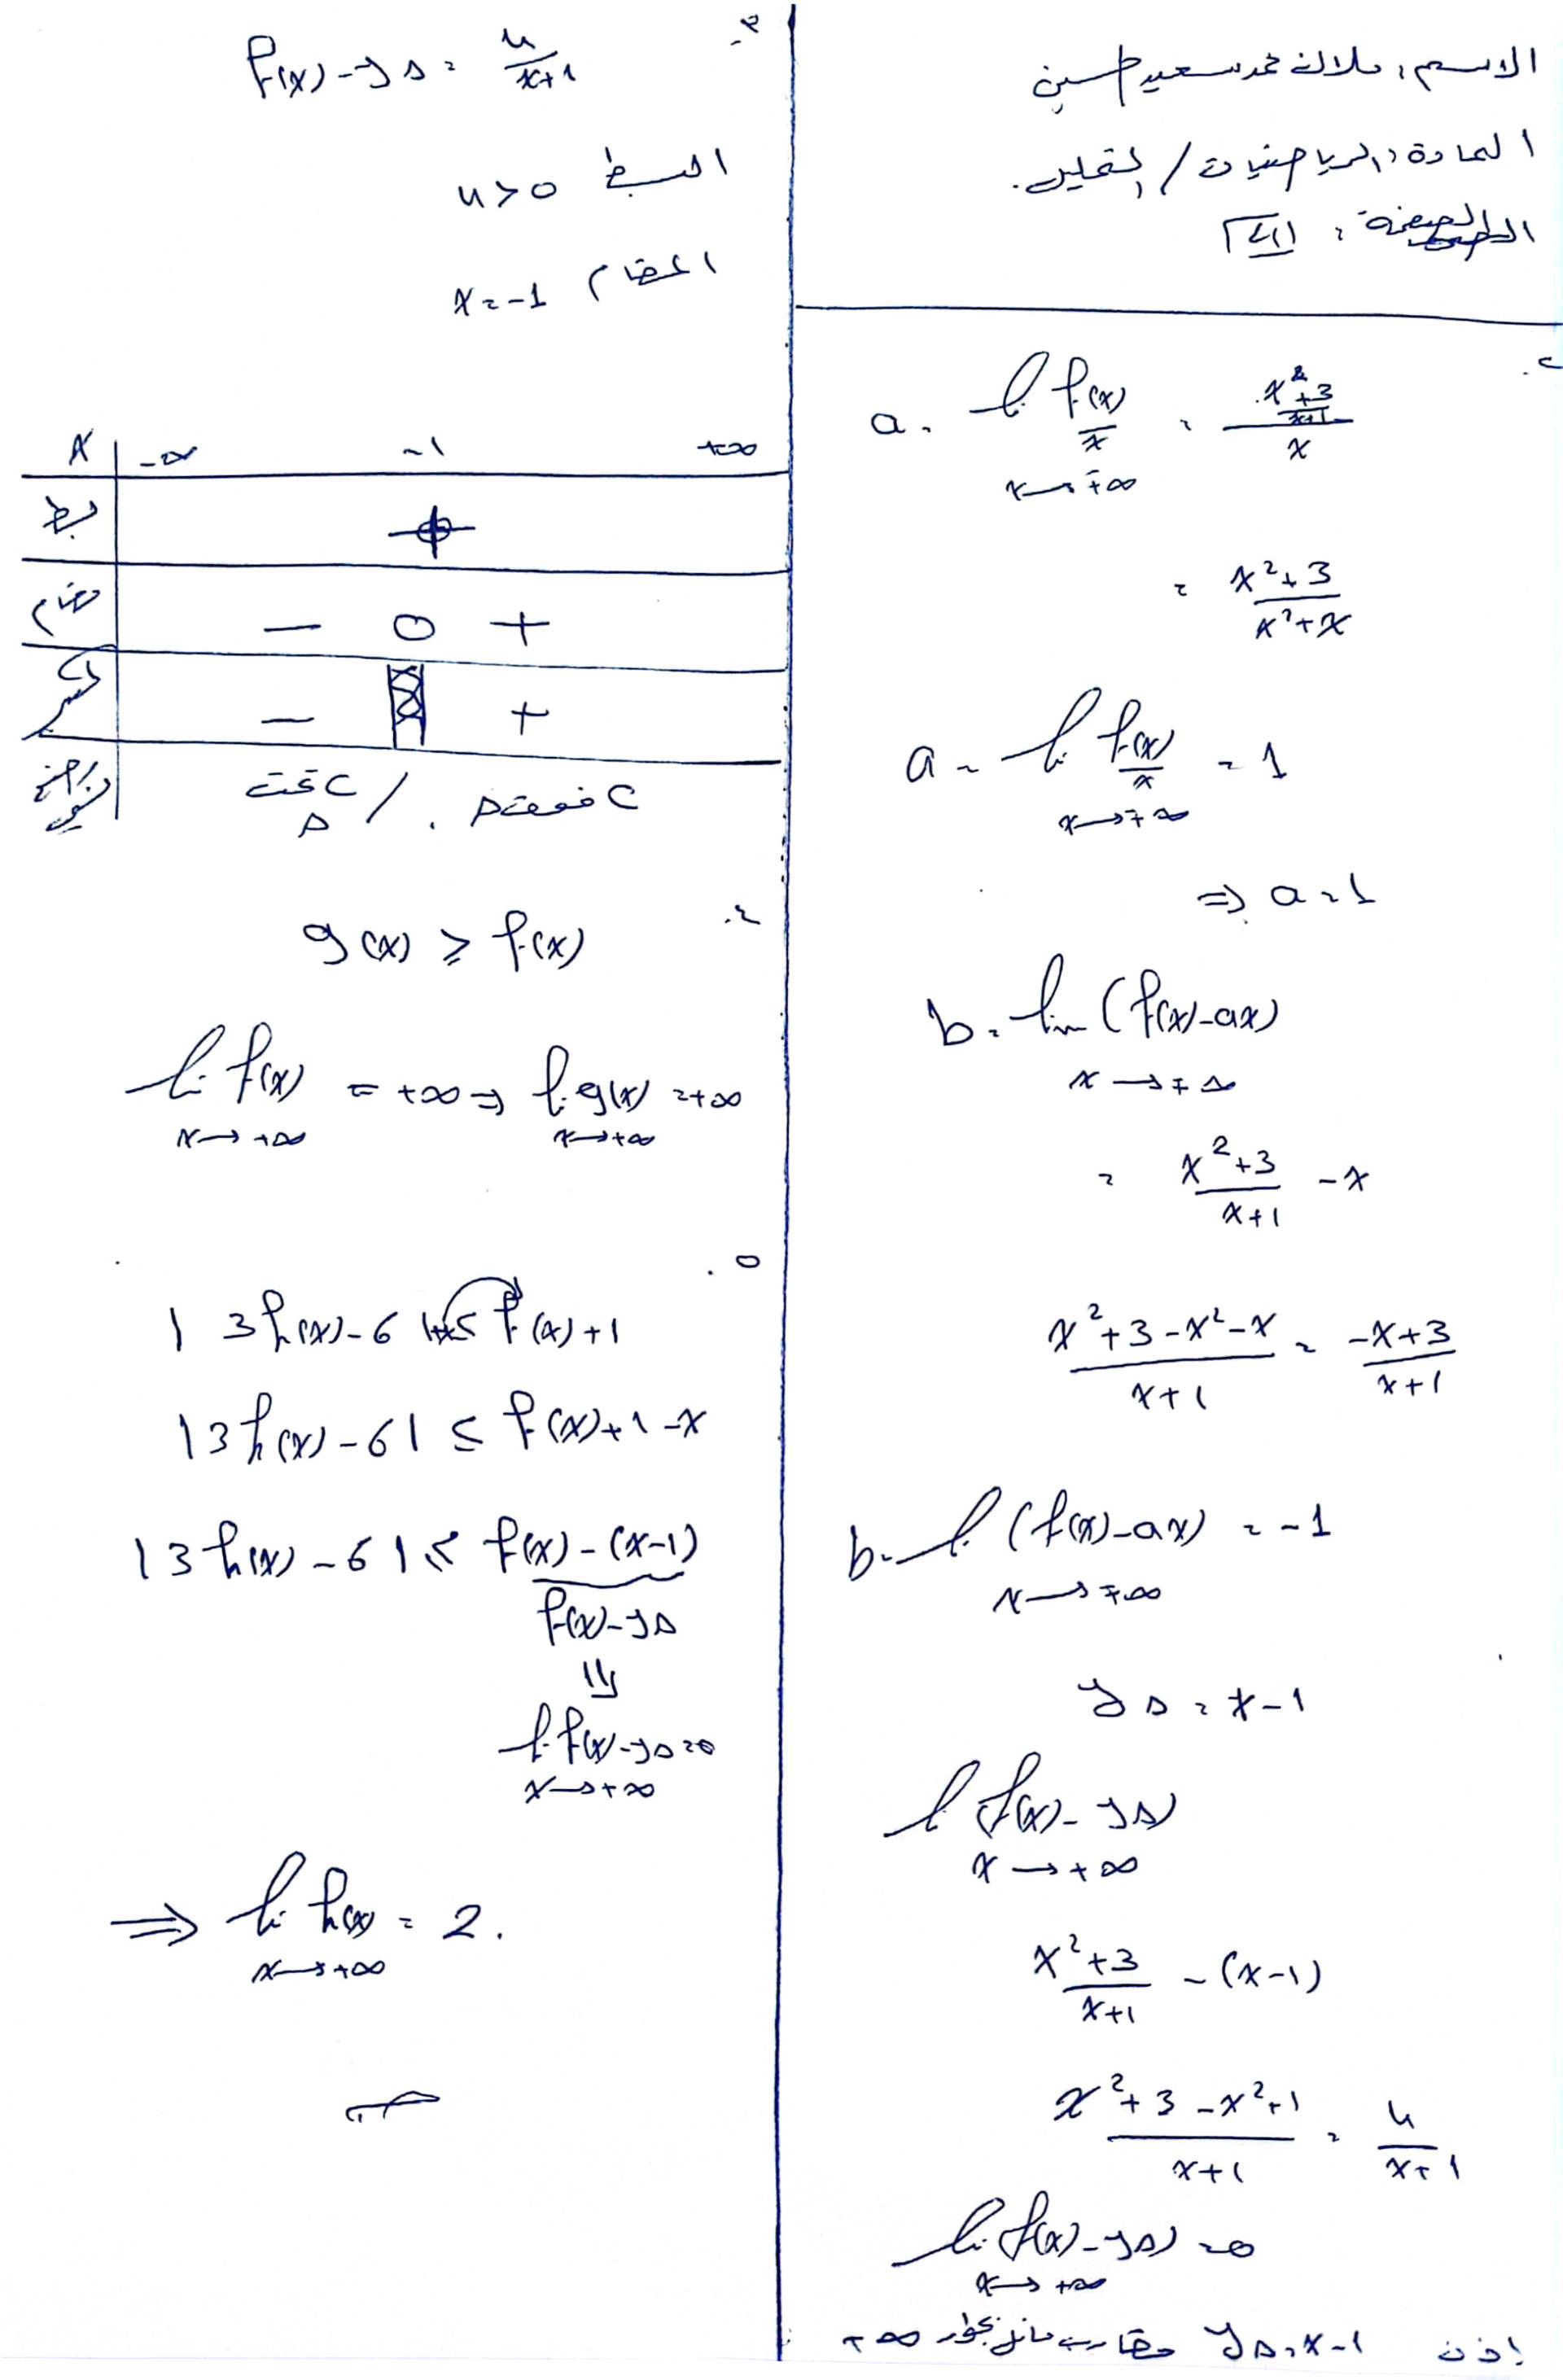 الاسم: ملاك محمد سعيد حسين
المادة: الرياضيات / التحليل.
الصفحة:
2.
a = lim f(x)/x = ((x²+3)/(x+1))/x
x→+∞
= (x²+3)/(x²+x)
a = lim f(x)/x = 1
x→+∞
⇒ a=1
b = lim (f(x)-ax)
x→+∞
= (x²+3)/(x+1) -x
(x²+3-x²-x)/(x+1) = (-x+3)/(x+1)
b= lim (f(x)-ax) = -1
x→+∞
yΔ = x-1
lim (f(x)-yΔ)
x→+∞
(x²+3)/(x+1) - (x-1)
(x²+3-x²+1)/(x+1) = 4/(x+1)
lim (f(x)-yΔ) =0
x→+∞
إذن yΔ=x-1 مقارب مائل بجوار +∞
3.
f(x)-yΔ = 4/(x+1)
البسط 4>0
المقام x=-1
x -∞ -1 +∞
بسط +
مقام - 0 +
- +
C تحت Δ / C فوق Δ
g(x) ≥ f(x)
lim f(x) = +∞ ⇒ lim g(x) =+∞
x→+∞ x→+∞
5.
|3h(x)-6|+x ≤ f(x)+1
|3h(x)-6| ≤ f(x)+1-x
|3h(x)-6| ≤ f(x)-(x-1)
f(x)-yΔ
⇓
lim f(x)-yΔ=0
x→+∞
⇒ lim h(x) = 2.
x→+∞